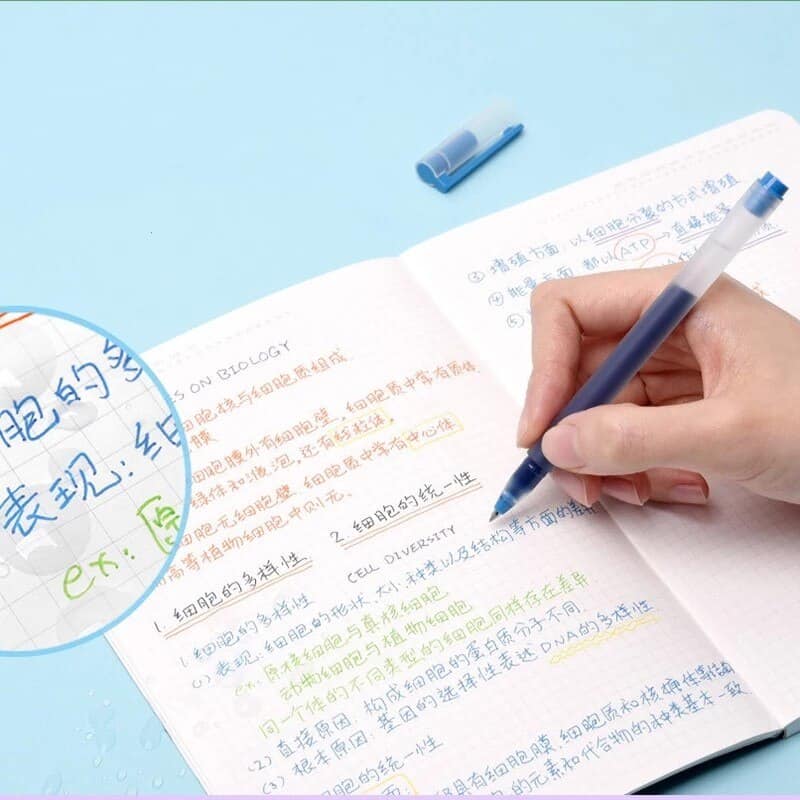 胞的多
表现：细
ex：原
ES ON BIOLOGY
细胞核与细胞质组成.
膜
细胞膜外有细胞壁. 细胞质中常有质体
绿体和液泡, 还有线粒体.
细胞无细胞壁. 细胞质中常有中心体
而高等植物细胞中则无.
1. 细胞的多样性
2. 细胞的统一性
CELL DIVERSITY
1. 细胞的多样性
(1) 表现：细胞的形状.大小.种类以及结构等方面的差异
ex：原核细胞与真核细胞
动物细胞与植物细胞
同一个体的不同类型的细胞同样存在差异
(2) 直接原因：构成细胞的蛋白质分子不同.
(3) 根本原因：基因的选择性表达 DNA的多样性
细胞的统一性
具有细胞膜.细胞质和核糖体等结构
的元素和化合物的种类基本一致.
③ 增殖方面：以细胞分裂的方式增殖
④ 能量方面：都以ATP → 直接能
⑤